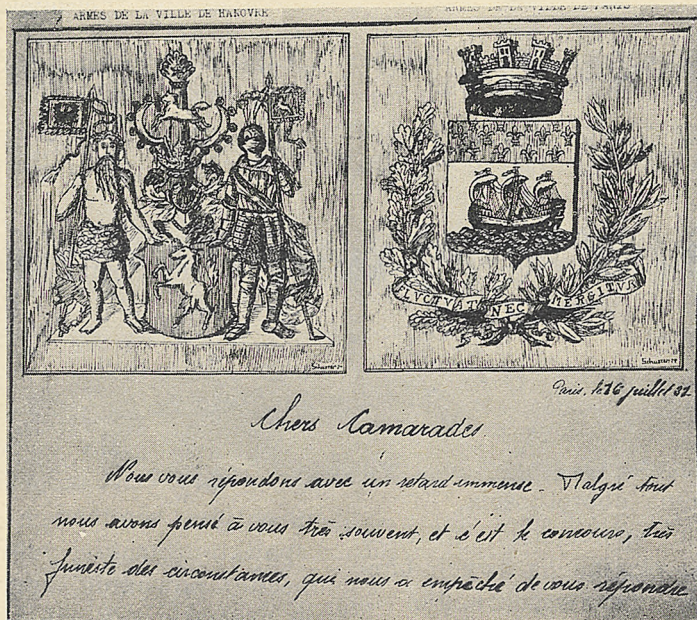 ARMES DE LA VILLE DE HANOVRE
ARMES DE LA VILLE DE PARIS
LVCTVAT NEC MERGITVR
Paris, le 16 juillet 32
Chers Camarades.
Nous vous répondons avec un retard immense. Malgré tout
nous avons pensé à vous très souvent, et c'est le concours, très
funeste des circonstances, qui nous a empêché de vous répondre